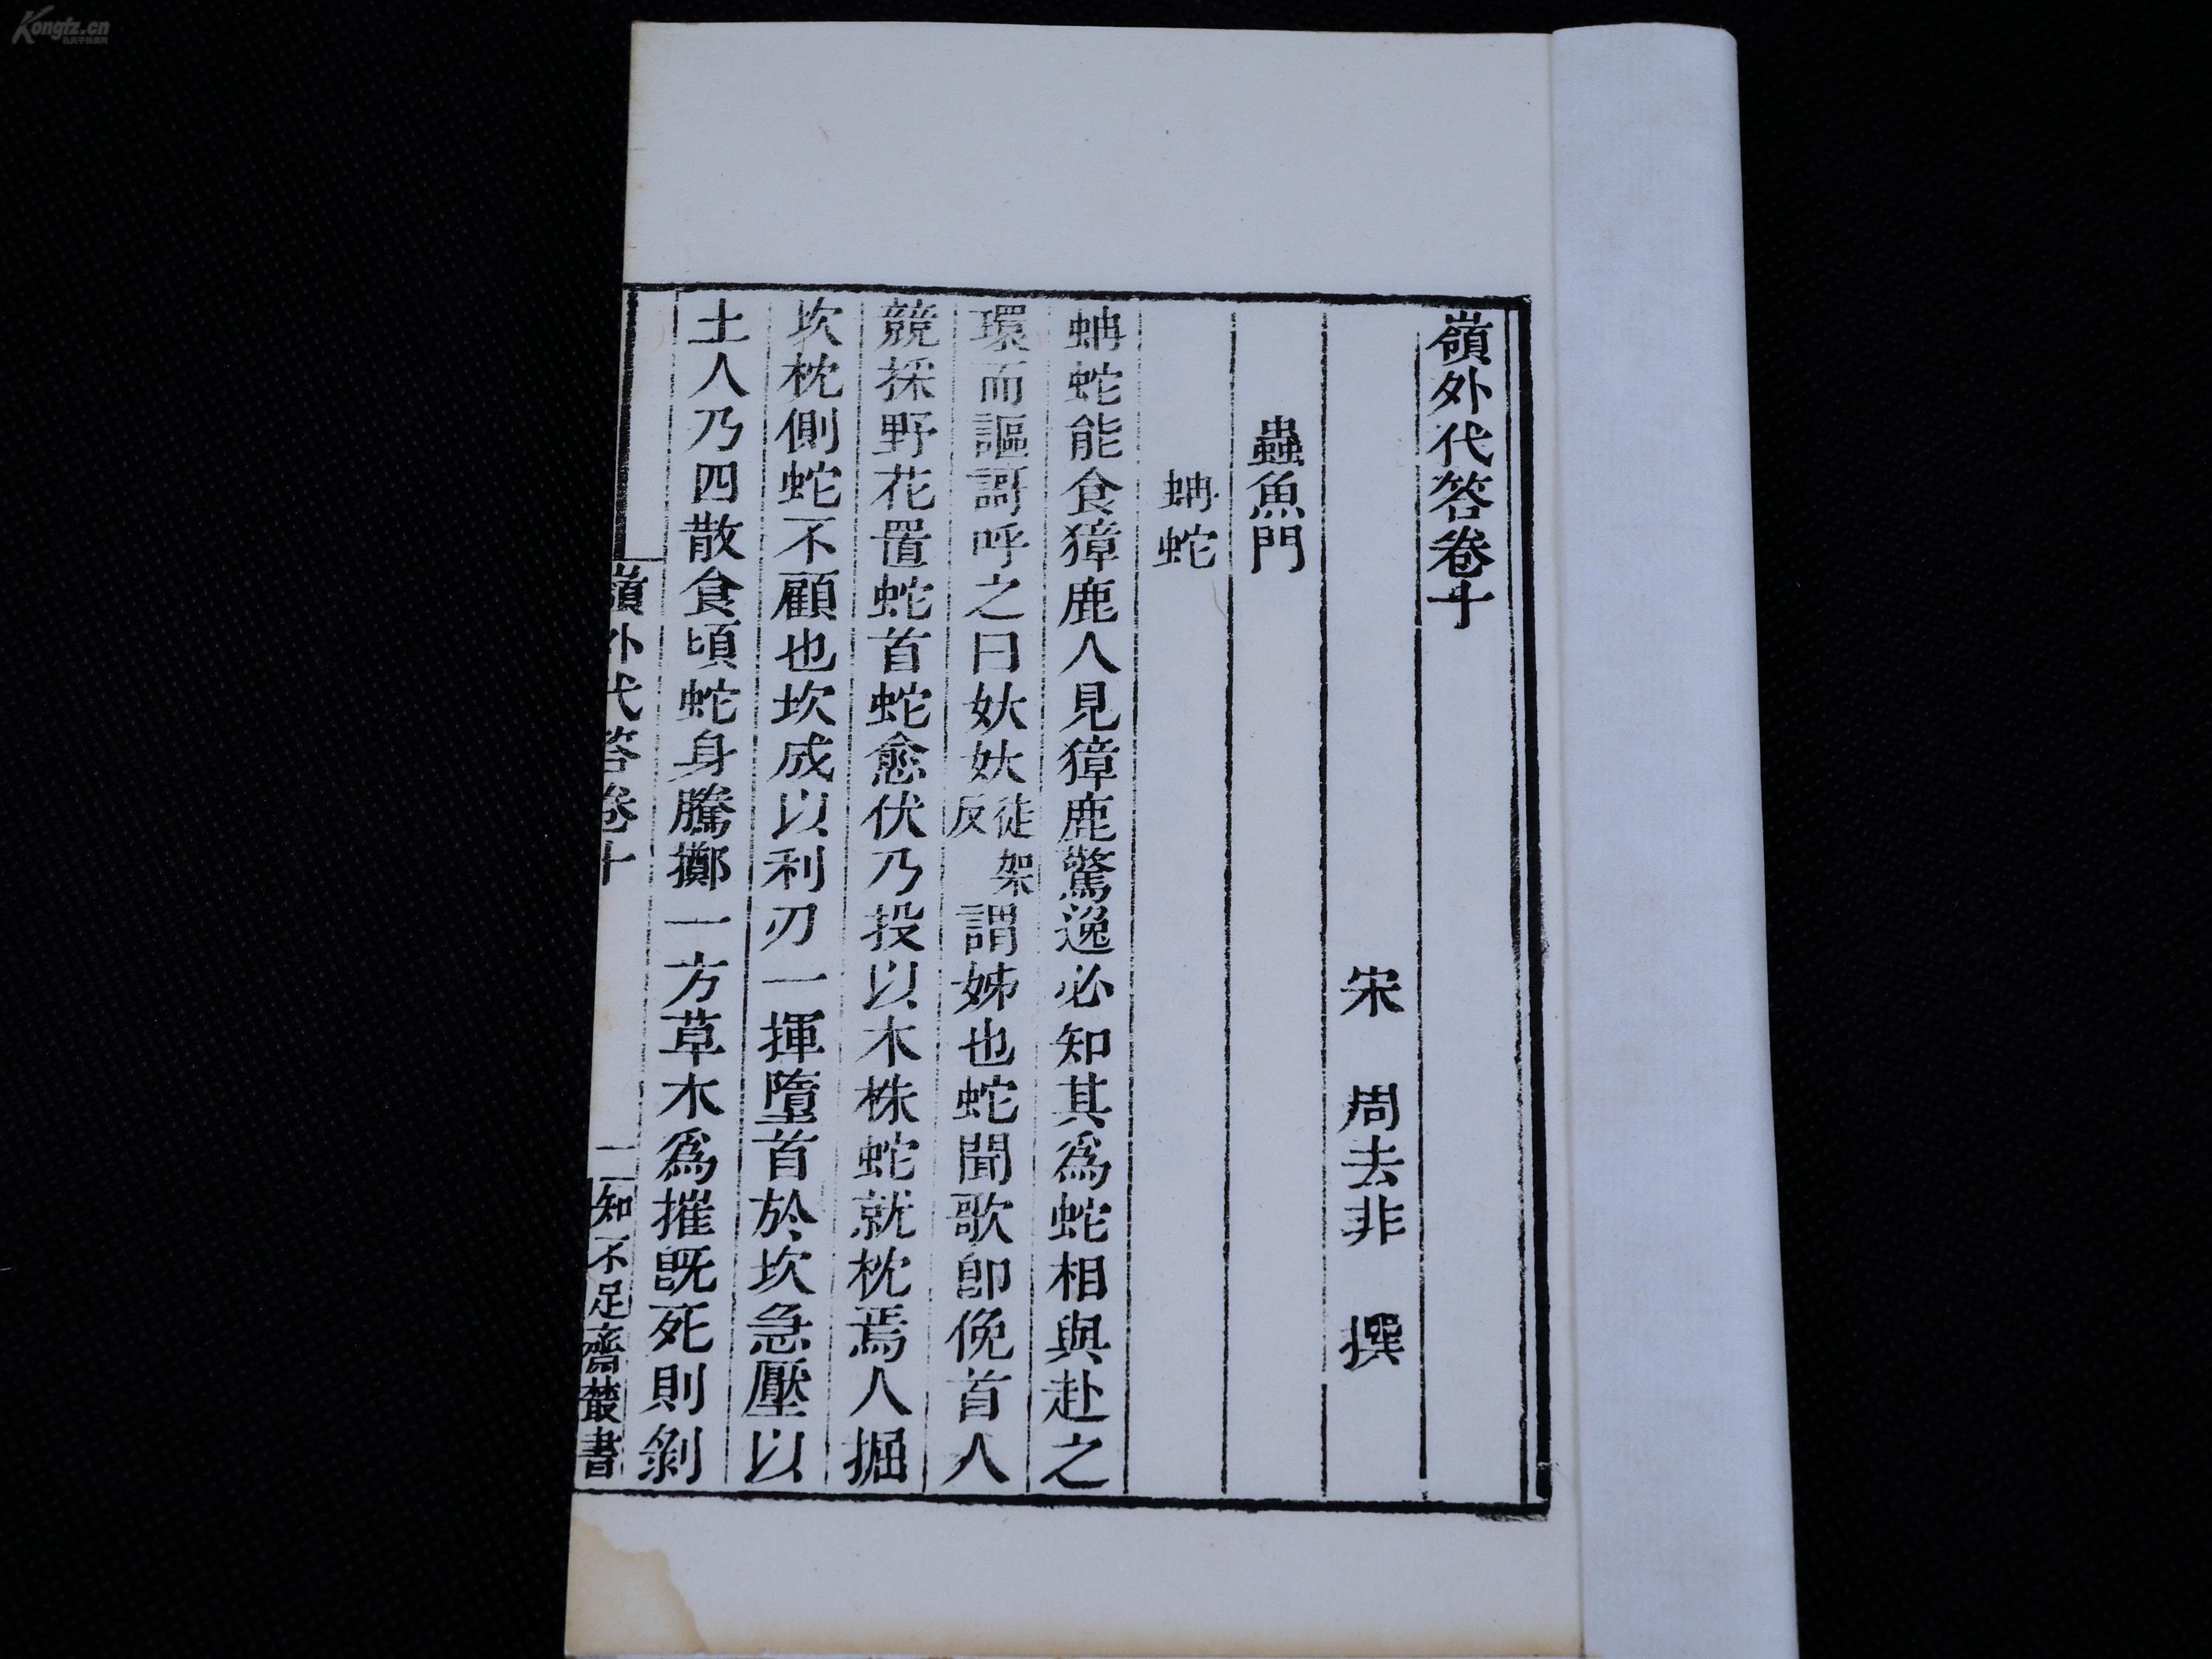 嶺外代答卷十
宋 周去非 撰
蟲魚門
蚺蛇
蚺蛇能食獐鹿人見獐鹿驚逸必知其爲蛇相與赴之
環而謳謌呼之曰妖妖徒架反謂姊也蛇聞歌卽俛首人
競採野花置蛇首蛇愈伏乃投以木株蛇就枕焉人掘
坎枕側蛇不顧也坎成以利刃一揮墮首於坎急壓以
土人乃四散食頃蛇身騰擲一方草木爲摧旣死則剝
嶺外代答卷十 一 知不足齋叢書
Kongfz.cn